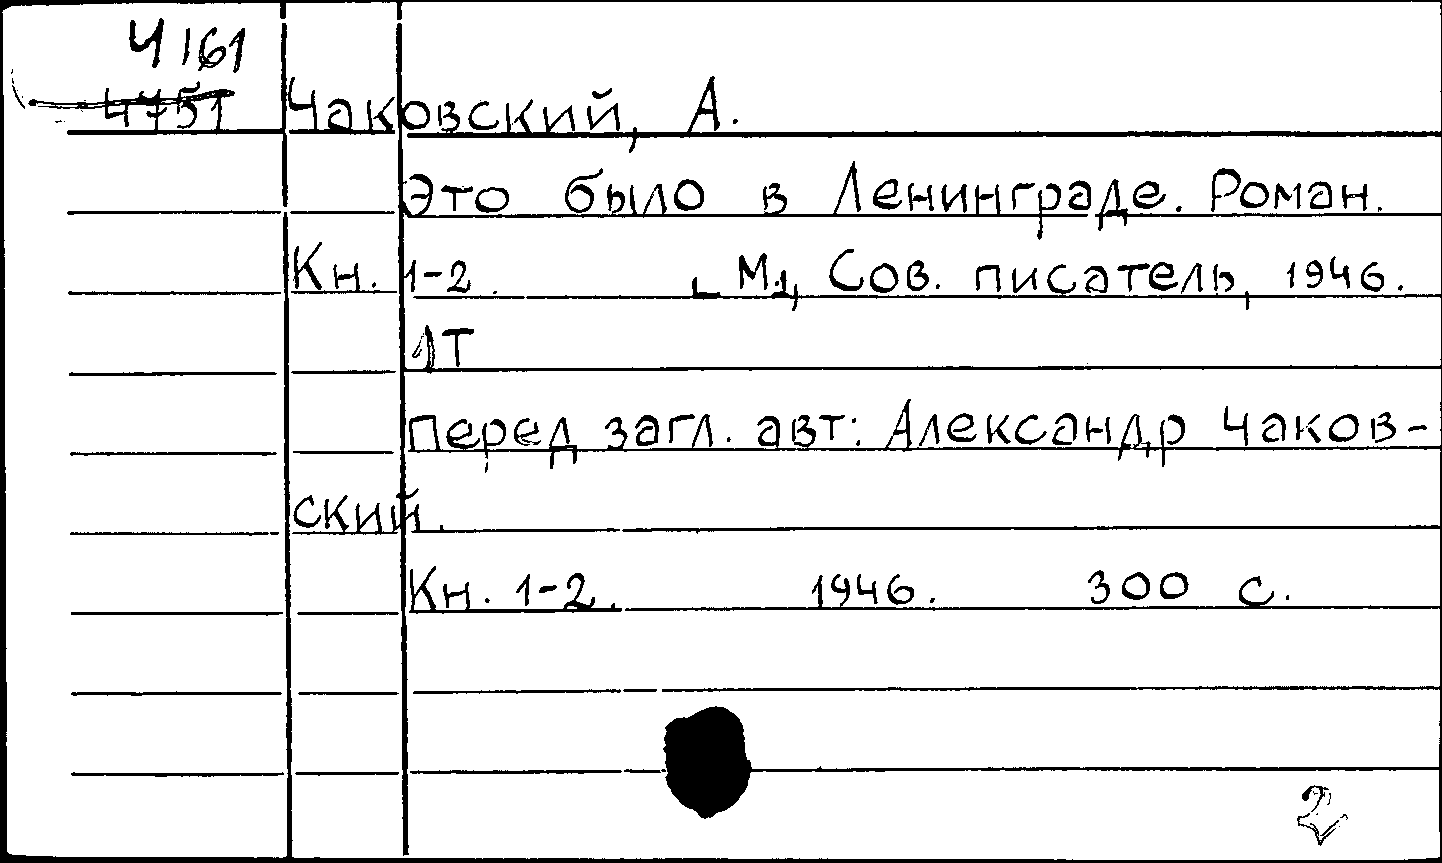 Ч 161
4751
Чаковский, А.
Это было в Ленинграде. Роман.
Кн. 1-2. [М.], Сов. писатель, 1946.
1т
Перед загл. авт: Александр Чаков-
ский.
Кн. 1-2. 1946. 300 с.
2